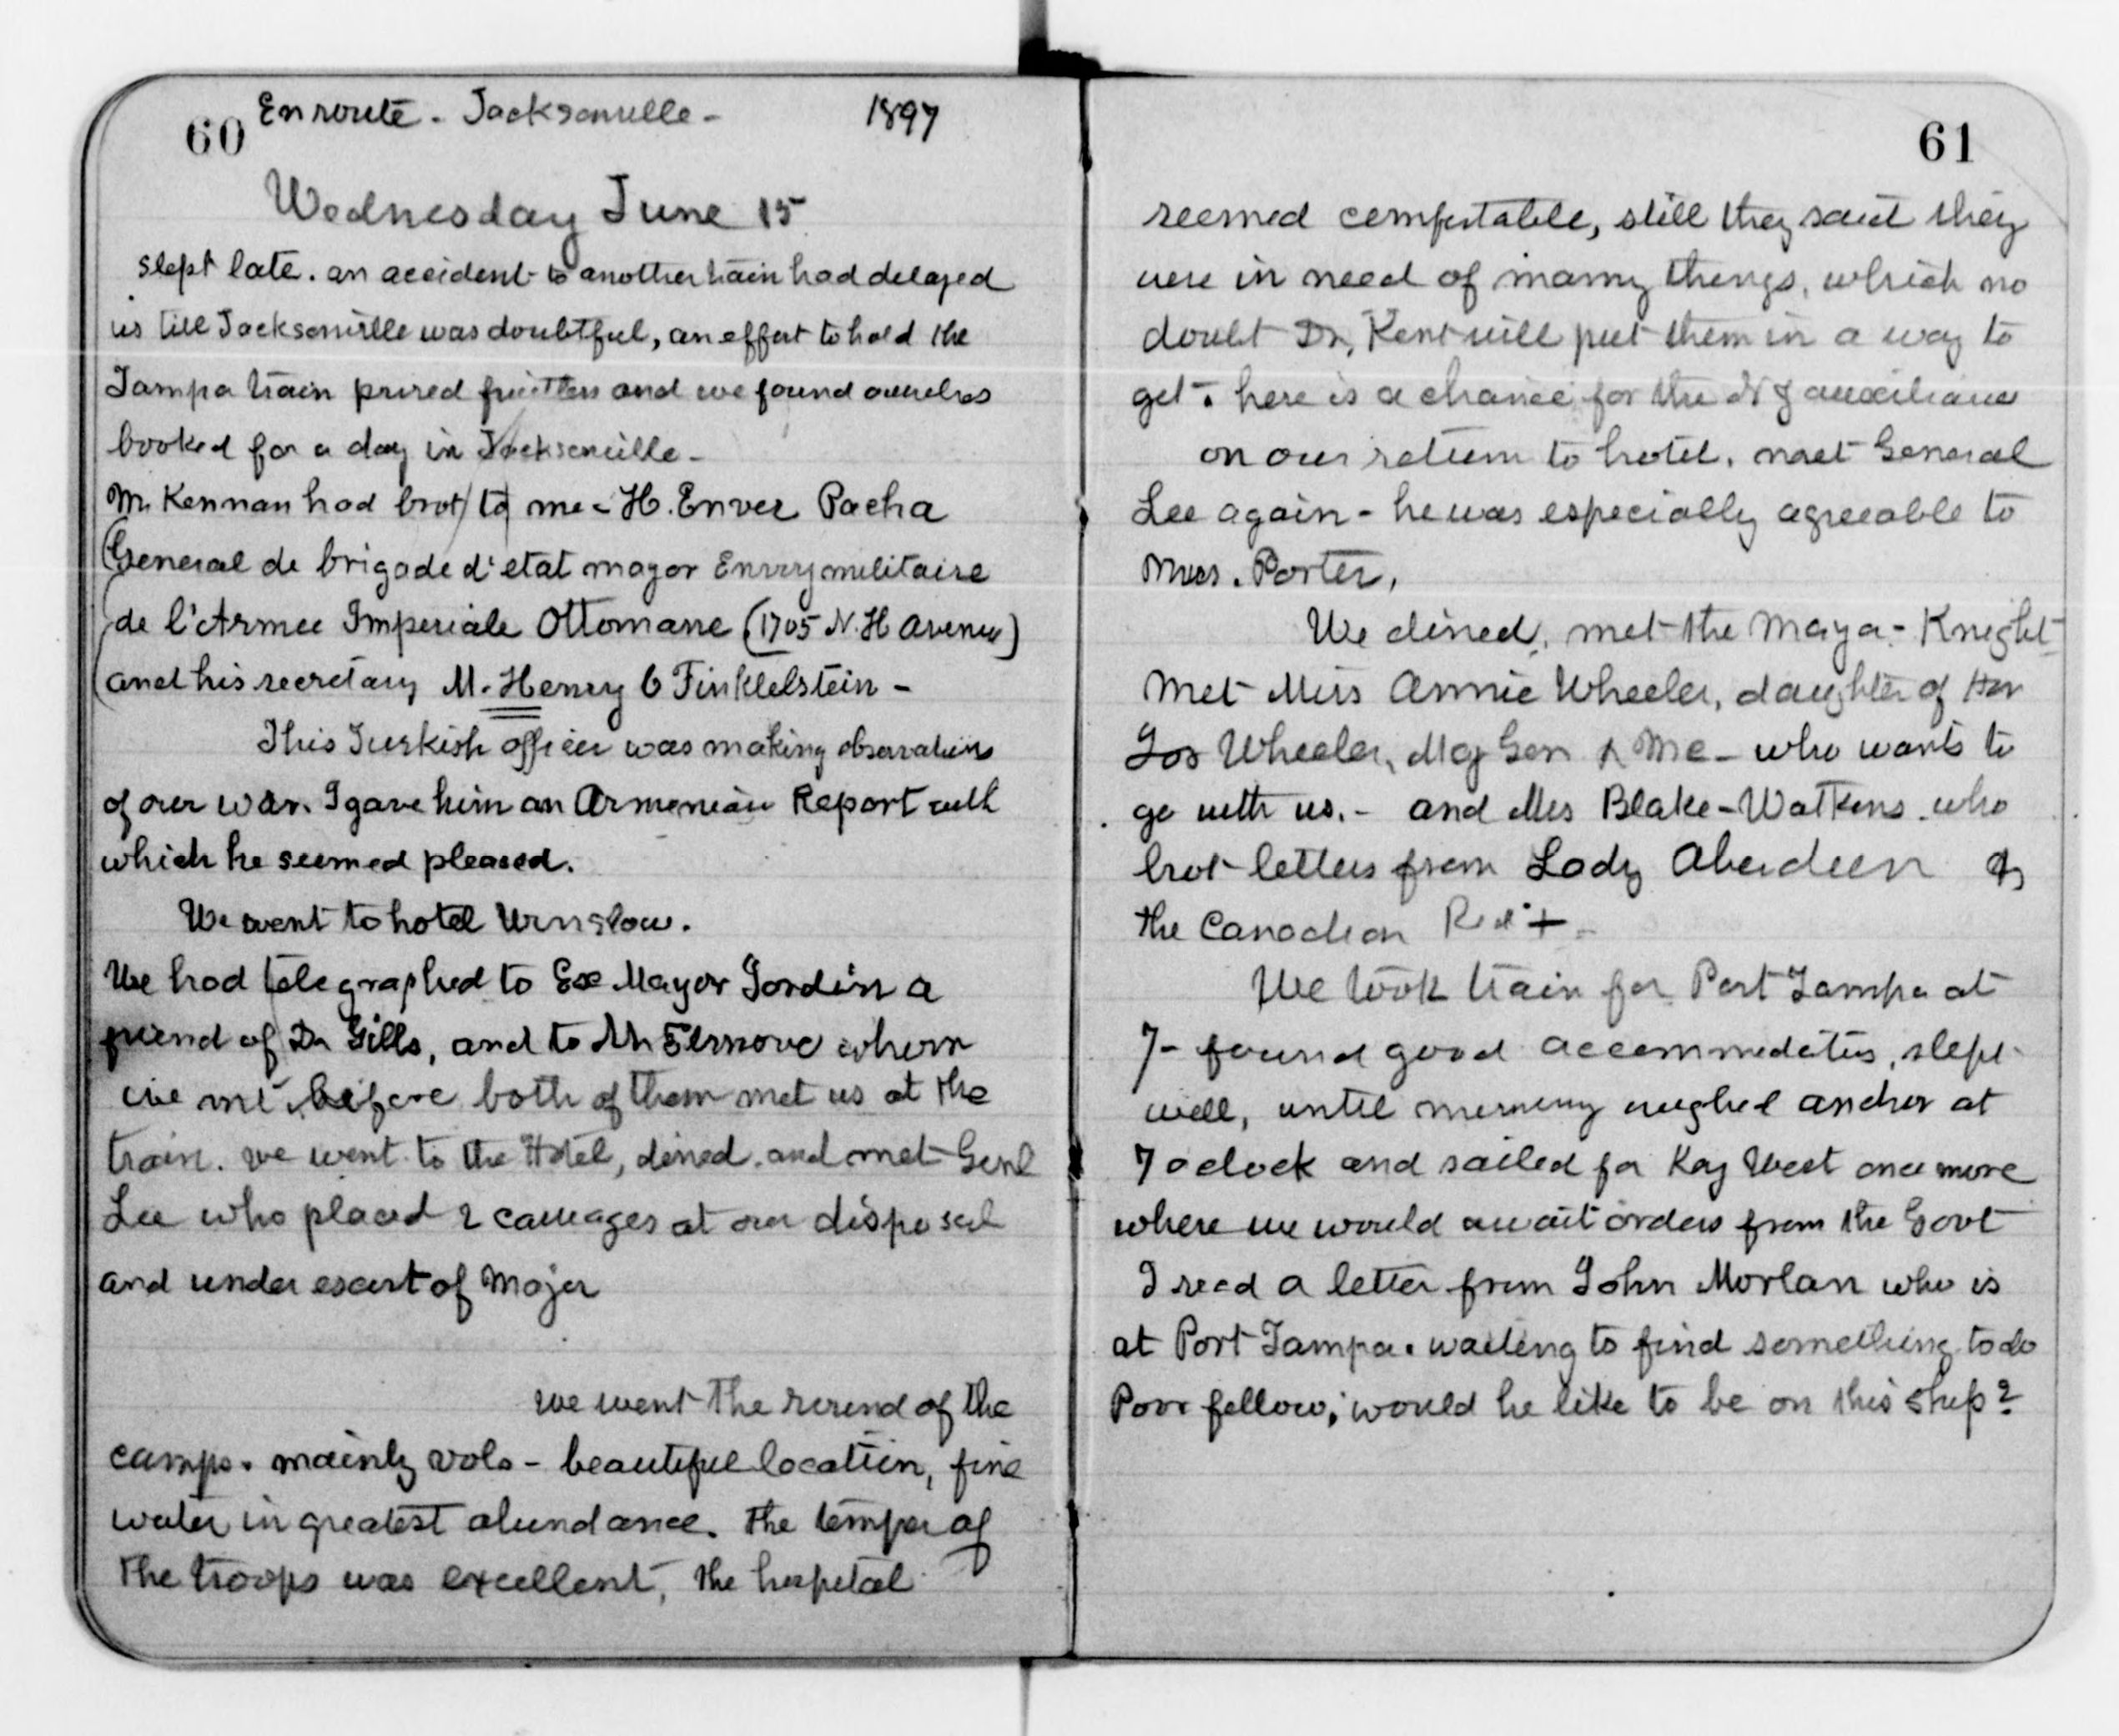 60 Enroute - Jacksonville - 1897
Wednesday June 15
slept late. an accident to another train had delayed
us till Jacksonville was doubtful, an effort to hold the
Tampa train proved fruitless and we found ourselves
booked for a day in Jacksonville -
Mr Kennan had brot to me - H. Enver Pacha
(General de brigade d'etat mayor Envoy militaire
de l'Armee Imperiale Ottomane (1705 N. H Avenue)
and his secretary M. Henry Finklelstein -
This Turkish officer was making observations
of our war. I gave him an Armenian Report with
which he seemed pleased.
We went to hotel Winslow.
We had telegraphed to Exe Mayor Gordin a
friend of Dr Gills, and to Mr whom
we met before both of them met us at the
train. we went to the Hotel, dined and met Genl
Lee who placed 2 carriages at our disposal
and under escort of Major
we went the round of the
camps. mainly vols - beautiful location, fine
water in greatest abundance. the temper of
the troops was excellent, the hospital
61
seemed comfortable, still they said they
were in need of many things, which no
doubt Dr, Kent will put them in a way to
get. here is a chance for the N Y auxiliaries
on our return to hotel, met General
Lee again - he was especially agreeable to
Mrs. Porter,
We dined, met the Mayor - Knight -
Met Miss Annie Wheeler, daughter of Hon
Jos Wheeler, Maj Gen & MC - who wants to
go with us. - and Mrs Blake-Watkins who
brot letters from Lady Aberdeen of
the Canadian Red +
We took train for Port Tampa at
7 - found good accommodatis, slept
well, until morning weighed anchor at
7 oclock and sailed for Key West once more
where we would await orders from the Govt
I read a letter from John Morlan who is
at Port Tampa. waiting to find something to do
Poor fellow; would he like to be on this ship?